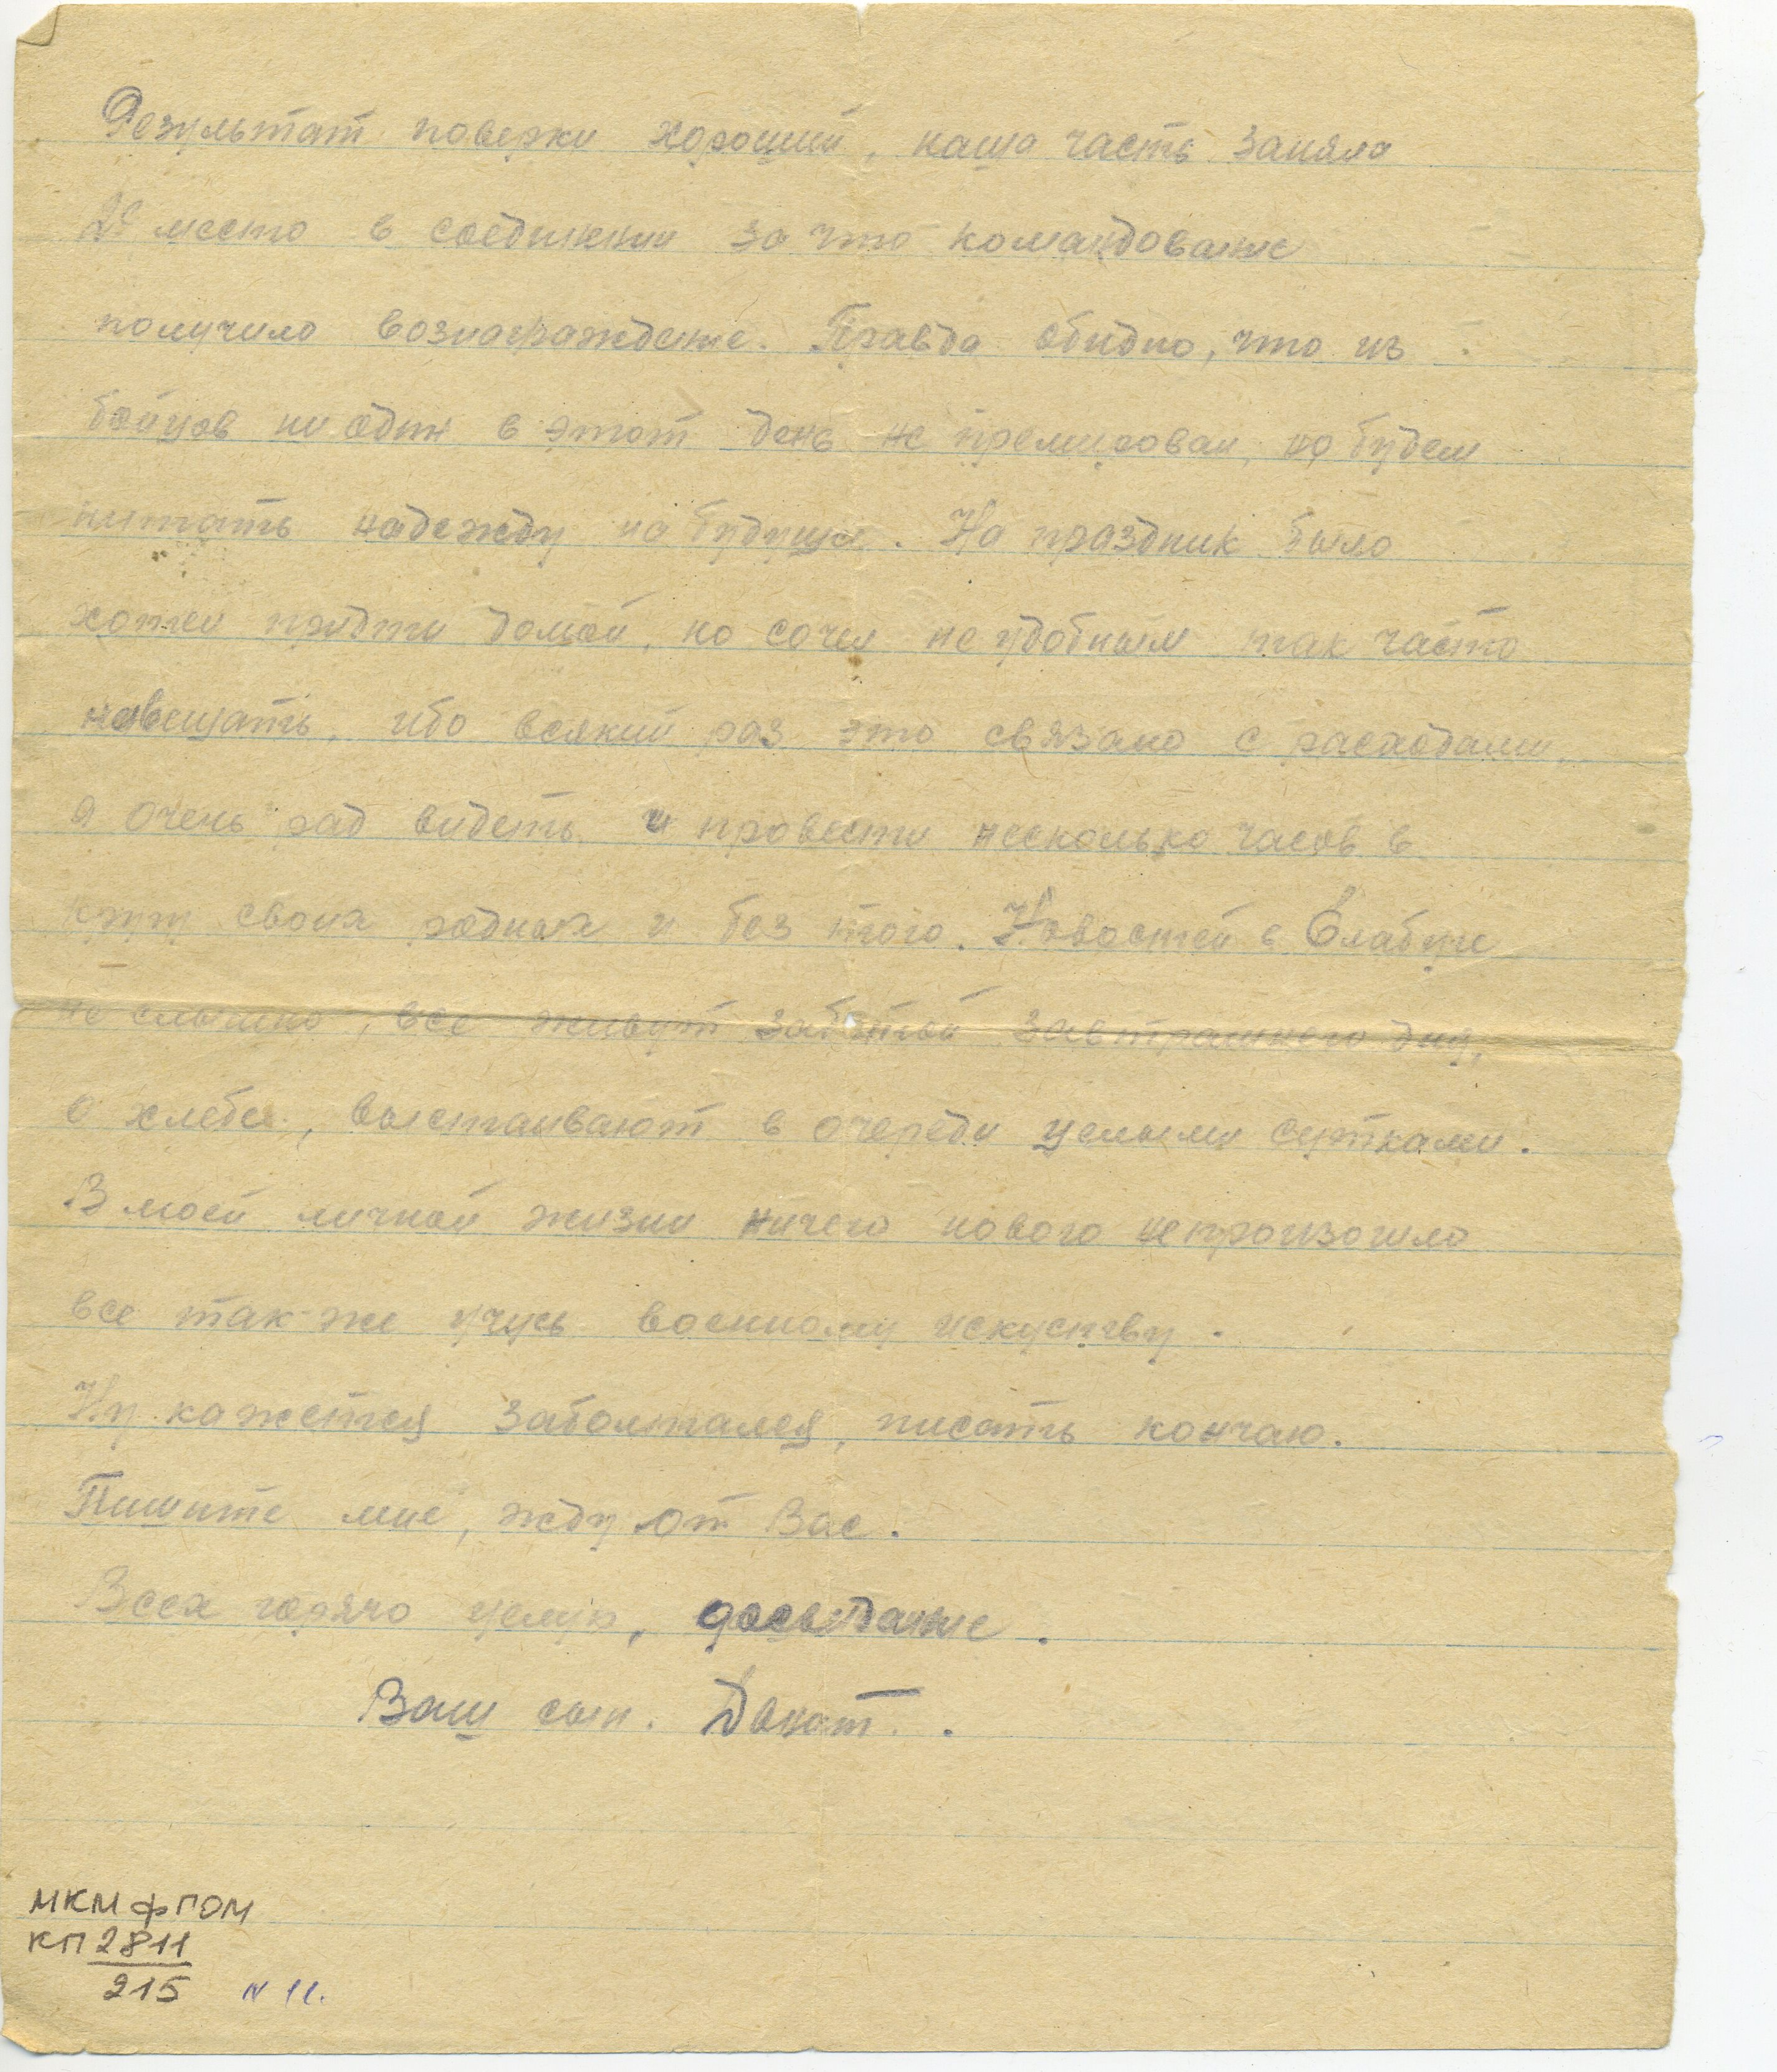 Результат поверки хороший, наша часть заняла
2е место в соединении за что командование
получило вознаграждение. Правда обидно, что из
бойцов ни один в этот день не премирован, но будем
питать надежду на будущее. На праздник было
хотел придти домой, но сочел не удобным так часто
навещать, ибо всякий раз это связано с расходами,
я очень рад видеть и провести несколько часов в
кругу своих родных и без того. Новостей в Елабуге
не слышно, все живут заботой завтрашнего дня,
о хлебе, выстаивают в очереди целыми сутками.
В моей личной жизни ничего нового непроизошло
все так-же учусь военному искуству.
Ну кажется заболтался, писать кончаю.
Пишите мне, жду от Вас.
Всех горячо целую, досвидание.
Ваш сын. Донат.
МКМФПОМ
КП 2811
215 N 11.